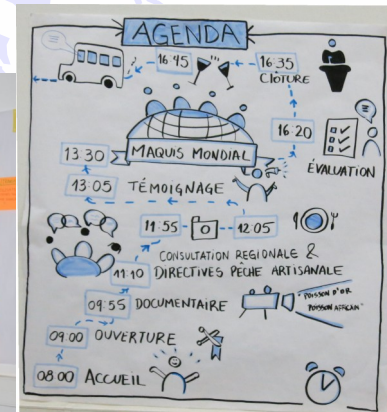 AGENDA
16 45
16:35
CLÔTURE
16:20
ÉVALUATION
13:30
MAQUIS MONDIAL
13:05
TÉMOIGNAGE
11:55
12 05
CONSULTATION REGIONALE &
11:10
DIRECTIVES PÊCHE ARTISANALE
09:55
DOCUMENTAIRE
POISSON D'OR
POISSON AFRICAIN
09:00
OUVERTURE
08 00
ACCUEIL